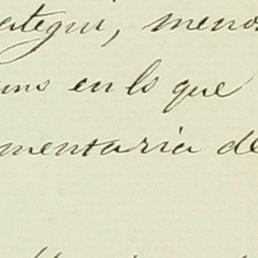 ategui, menos
uno en lo que
mentaria de